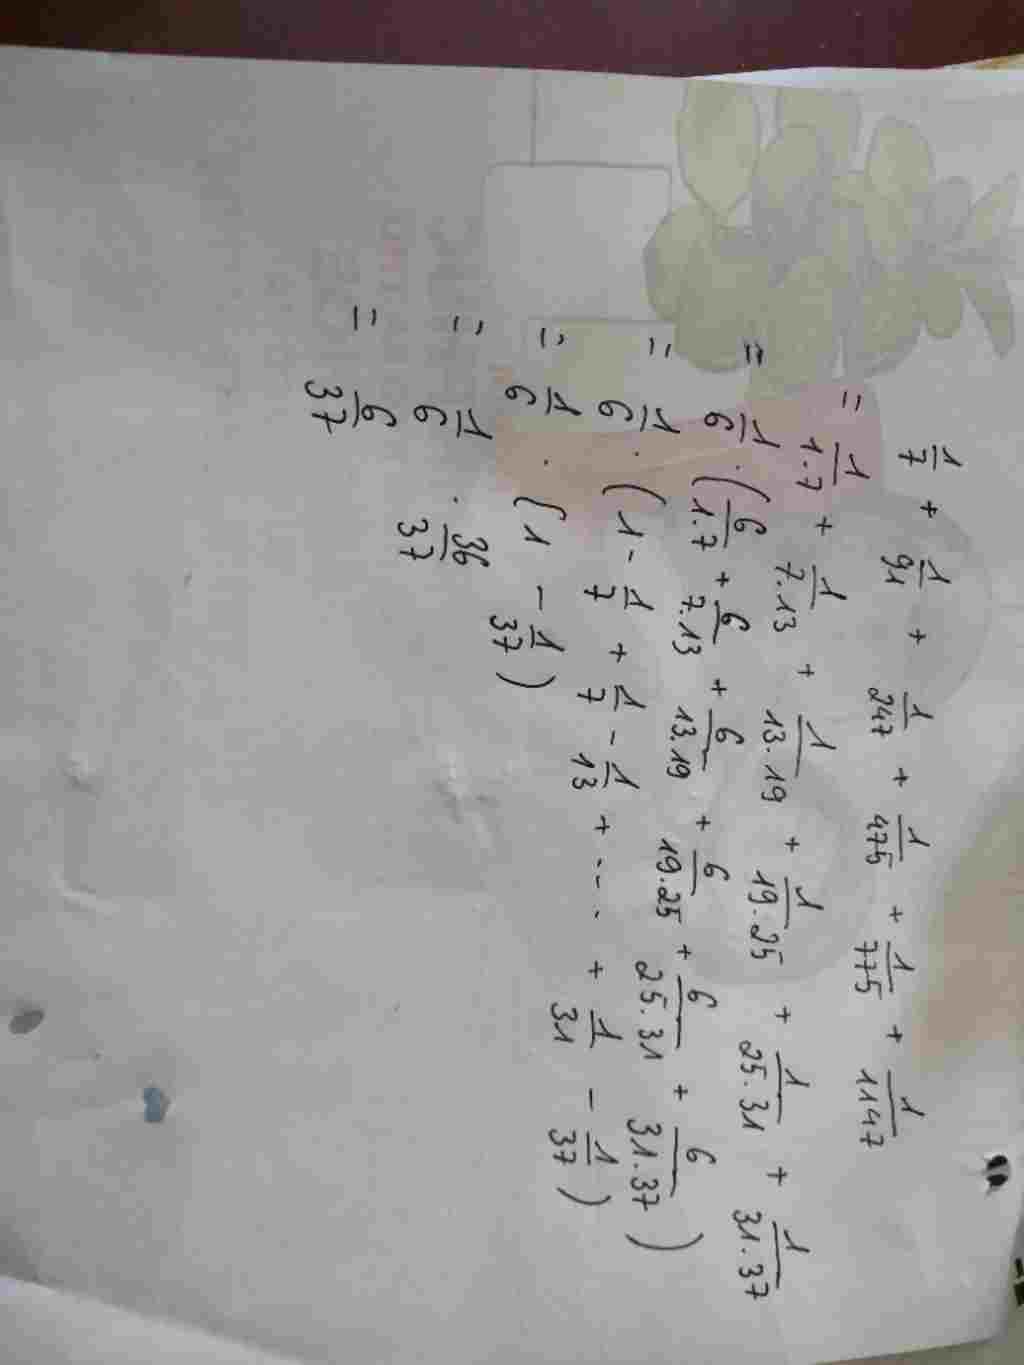 1/7 + 1/91 + 1/247 + 1/475 + 1/775 + 1/1147
= 1/1.7 + 1/7.13 + 1/13.19 + 1/19.25 + 1/25.31 + 1/31.37
= 1/6 . (6/1.7 + 6/7.13 + 6/13.19 + 6/19.25 + 6/25.31 + 6/31.37)
= 1/6 . (1 - 1/7 + 1/7 - 1/13 + ... + 1/31 - 1/37)
= 1/6 . (1 - 1/37)
= 1/6 . 36/37
= 6/37